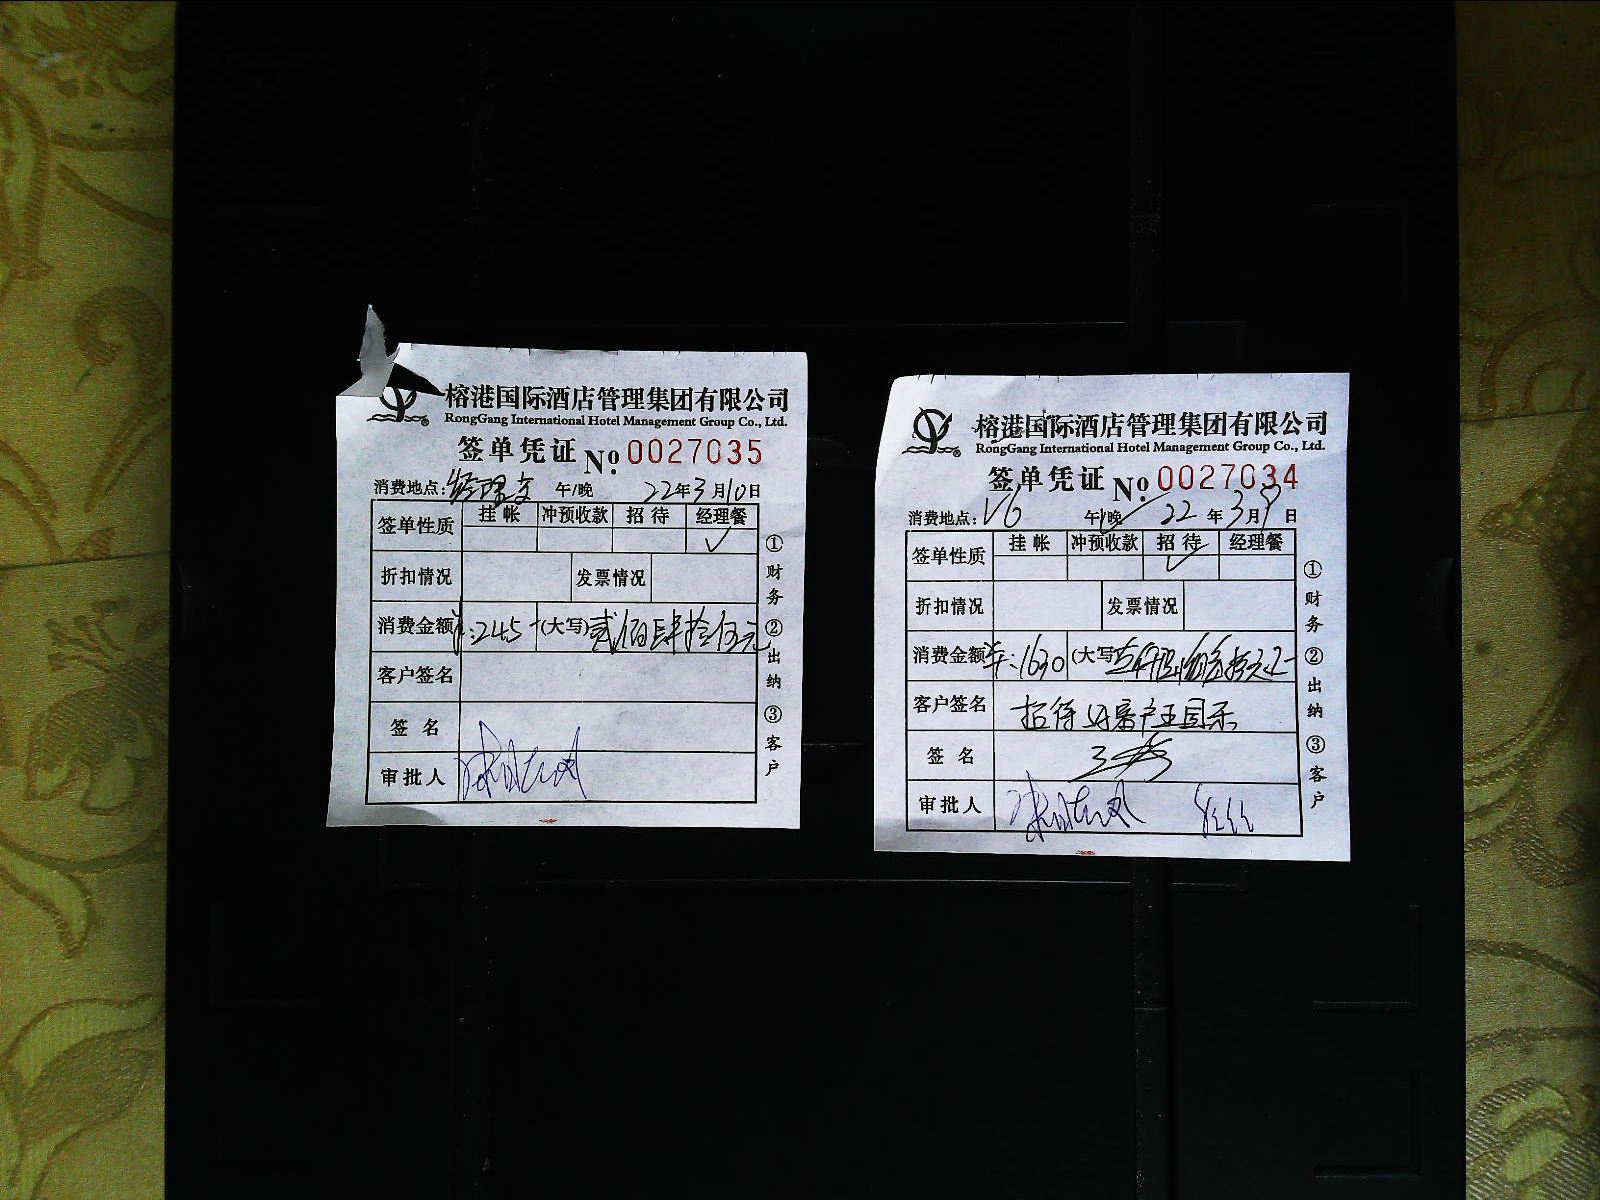 榕港国际酒店管理集团有限公司
RongGang International Hotel Management Group Co., Ltd.
签单凭证 №. 0027035
消费地点: 经理 午/晚 22年3月10日
签单性质 挂帐 冲预收款 招待 经理餐
✓
折扣情况 发票情况
消费金额 ¥:245 (大写) 贰佰肆拾伍元
客户签名
签名
审批人
①财务 ②出纳 ③客户
榕港国际酒店管理集团有限公司
RongGang International Hotel Management Group Co., Ltd.
签单凭证 №. 0027034
消费地点: V6 午/晚 22年3月9日
签单性质 挂帐 冲预收款 招待 经理餐
✓
折扣情况 发票情况
消费金额 ¥:1630 (大写)
客户签名 招待
签名
审批人
①财务 ②出纳 ③客户